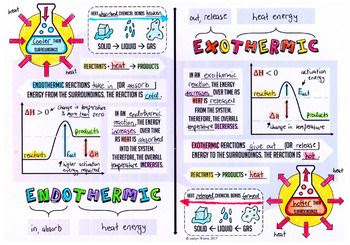 heat
heat
heat
heat
Cooler THAN
SURROUNDINGS
HEAT absorbed CHEMICAL BONDS broken
SOLID → LIQUID → GAS
REACTANTS + heat → PRODUCTS
ENDOTHERMIC REACTIONS take in (OR absorb)
ENERGY FROM THE SURROUNDINGS. THE REACTION IS cold.
ΔH > 0
change in temperature
is more than zero
products
reactants
Ea↑
ΔH↑
higher activation
energy required
IN AN endothermic
reaction, THE ENERGY
increases OVER TIME
AS HEAT IS absorbed
INTO THE SYSTEM.
THEREFORE, THE OVERALL
temperature INCREASES.
ENDOTHERMIC
in, absorb
heat energy
out, release
heat energy
EXOTHERMIC
IN AN exothermic
reaction, THE ENERGY
decreases OVER TIME AS
HEAT IS released
FROM THE SYSTEM.
THEREFORE, THE OVERALL
temperature DECREASES.
ΔH < 0
activation
energy
reactants
Ea↑
ΔH↓
products
change in temperature
EXOTHERMIC REACTIONS give out (OR release)
ENERGY TO THE SURROUNDINGS. THE REACTION IS hot.
REACTANTS → PRODUCTS + heat
HEAT released CHEMICAL BONDS formed
SOLID ← LIQUID ← GAS
heat
heat
heat
heat
hotter THAN
SURROUNDINGS